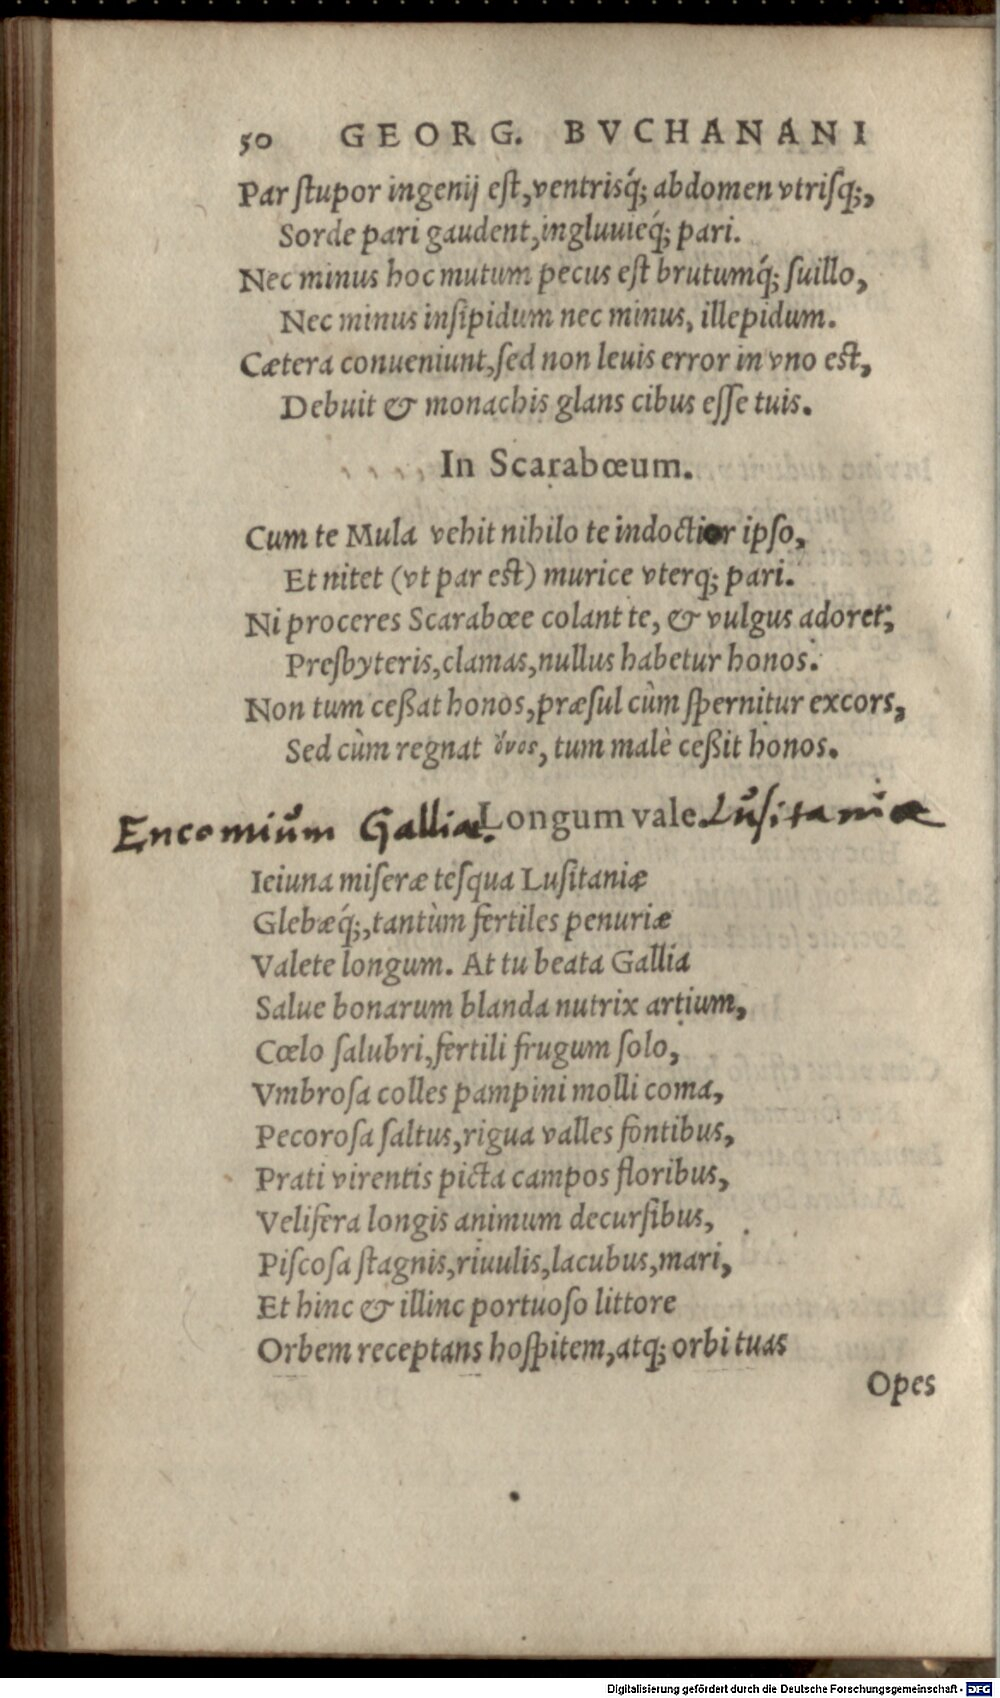 50 GEORG. BVCHANANI
Par ſtupor ingenij eſt, ventriſq́; abdomen vtriſq;,
Sorde pari gaudent, ingluuieq́; pari.
Nec minus hoc mutum pecus eſt brutumq́; ſuillo,
Nec minus inſipidum nec minus, illepidum.
Cætera conueniunt, ſed non leuis error in vno eſt,
Debuit & monachis glans cibus eſſe tuis.
In Scarabœum.
Cum te Mula vehit nihilo te indoctior ipſo,
Et nitet (vt par eſt) murice vterq; pari.
Ni proceres Scarabœe colant te, & vulgus adoret,
Preſbyteris, clamas, nullus habetur honos.
Non tum ceßat honos, præſul cùm ſpernitur excors,
Sed cùm regnat ὄνος, tum malè ceßit honos.
Encomium Galliæ. Longum vale Luſitaniæ
Ieiuna miſeræ teſqua Luſitaniæ
Glebæq́;, tantùm fertiles penuriæ
Valete longum. At tu beata Gallia
Salue bonarum blanda nutrix artium,
Cœlo ſalubri, fertili frugum ſolo,
Vmbroſa colles pampini molli coma,
Pecoroſa ſaltus, rigua valles fontibus,
Prati virentis picta campos floribus,
Velifera longis animum decurſibus,
Piſcoſa ſtagnis, riuulis, lacubus, mari,
Et hinc & illinc portuoſo littore
Orbem receptans hoſpitem, atq; orbi tuas
Opes
Digitalisierung gefördert durch die Deutsche Forschungsgemeinschaft - DFG